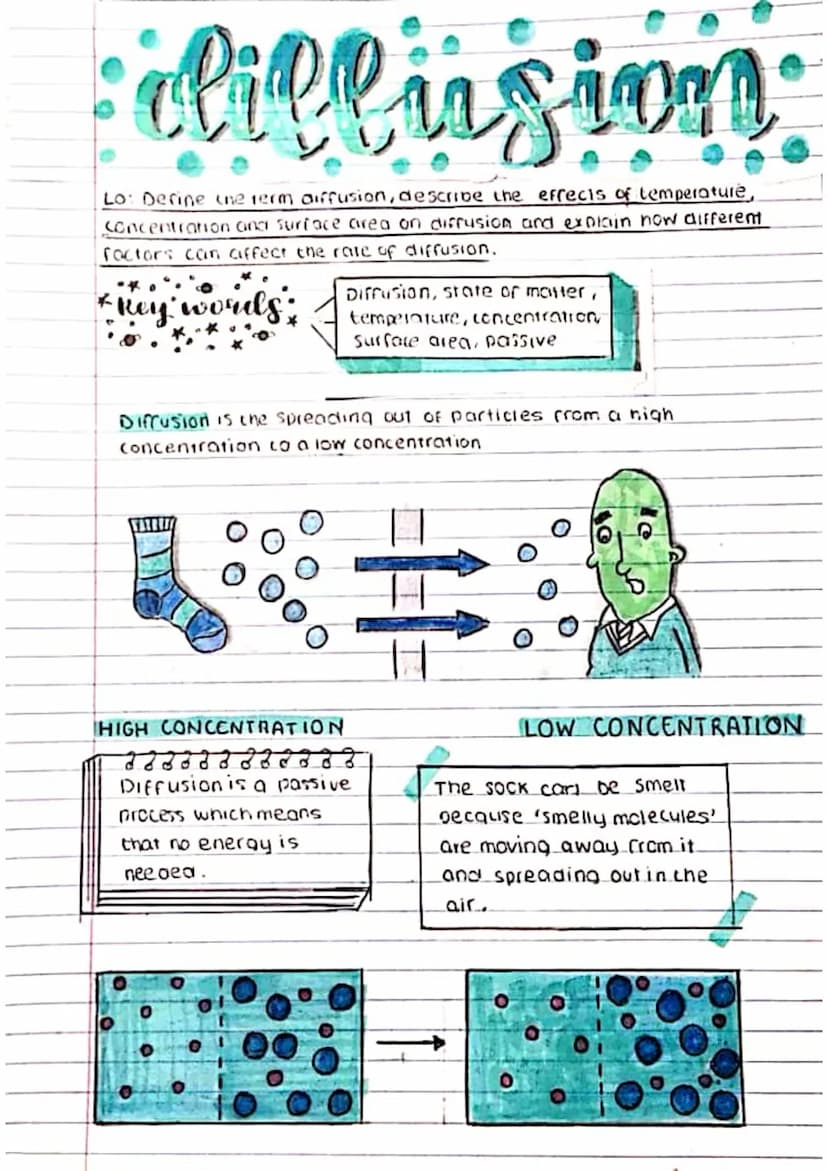 diffusion
LO: Define the term diffusion, describe the effects of temperature,
concentration and surface area on diffusion and explain how different
factors can affect the rate of diffusion.
Key words
Diffusion, state of matter,
temperature, concentration,
surface area, passive
Diffusion is the spreading out of particles from a high
concentration to a low concentration
HIGH CONCENTRATION
LOW CONCENTRATION
Diffusion is a passive
process which means
that no energy is
needed.
The sock can be smelt
because 'smelly molecules'
are moving away from it
and spreading out in the
air.